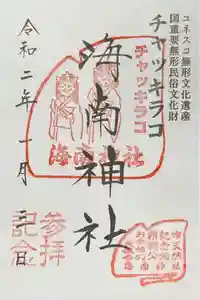 ユネスコ無形文化遺産
国重要無形民俗文化財
チャッキラコ
チャッキラコ
海南神社
海南神社
令和二年十一月三日
参拝
記念